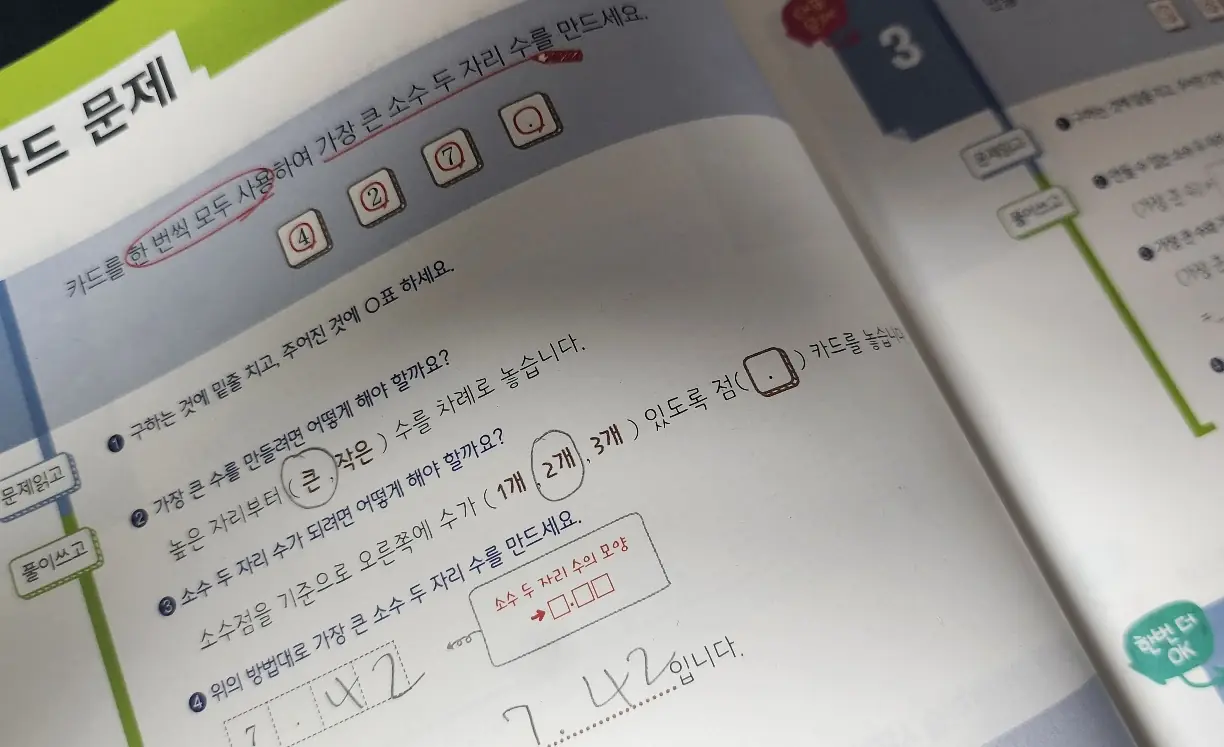 카드 문제
카드를 한 번씩 모두 사용하여 가장 큰 소수 두 자리 수를 만드세요.
4 2 7 .
문제읽고
❶ 구하는 것에 밑줄 치고, 주어진 것에 O표 하세요.
풀이쓰고
❷ 가장 큰 수를 만들려면 어떻게 해야 할까요?
높은 자리부터 ( 큰 , 작은 ) 수를 차례로 놓습니다.
❸ 소수 두 자리 수가 되려면 어떻게 해야 할까요?
소수점을 기준으로 오른쪽에 수가 ( 1개 , 2개 , 3개 ) 있도록 점( . ) 카드를 놓습니다
❹ 위의 방법대로 가장 큰 소수 두 자리 수를 만드세요.
소수 두 자리 수의 모양
➜□.□□
7 . 4 2
7.42입니다.
3
문제읽고
풀이쓰고
한번 더
OK